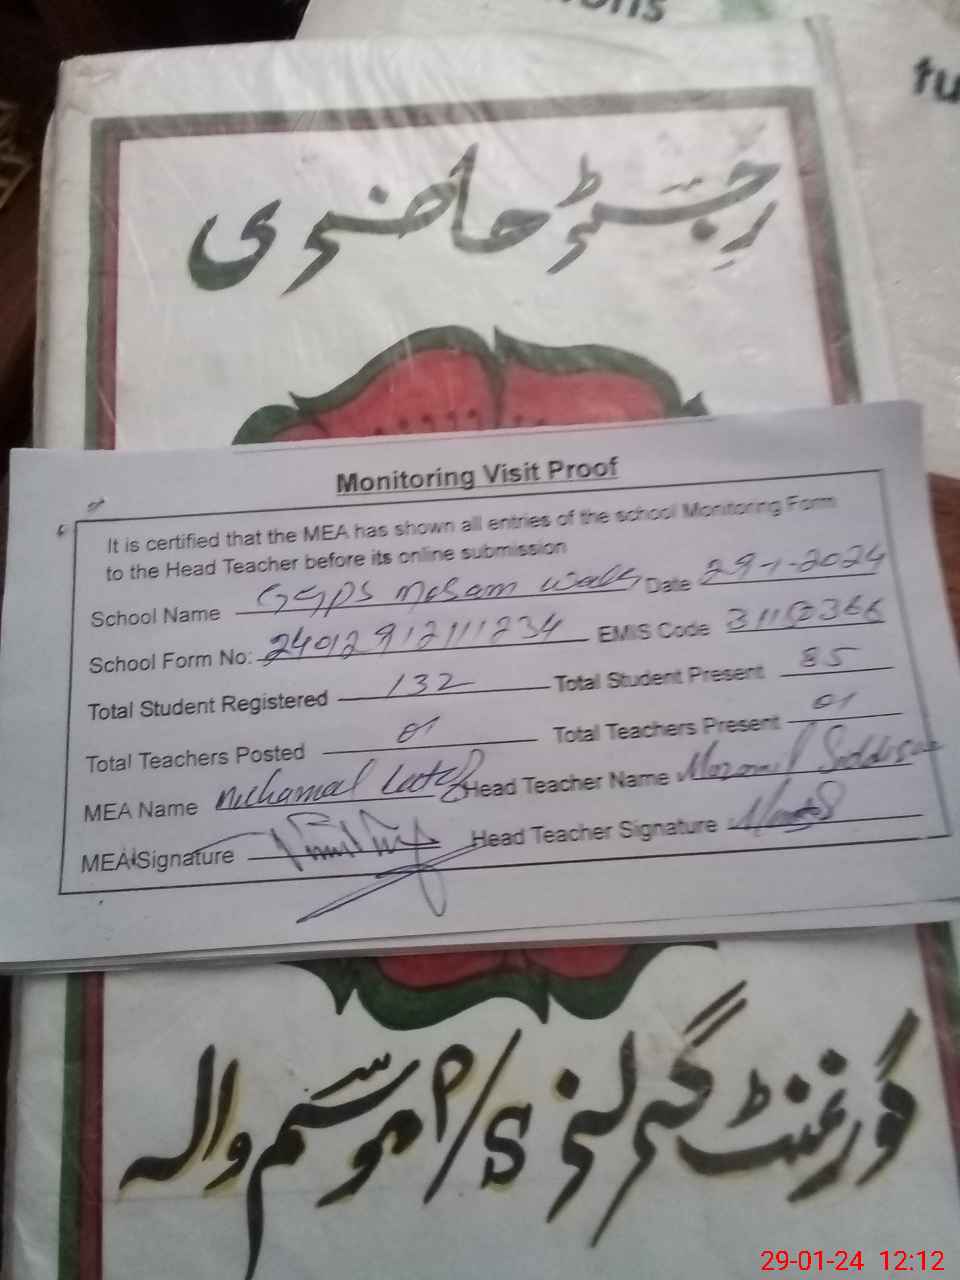 ons
tu
رجسٹر حاضری
Monitoring Visit Proof
It is certified that the MEA has shown all entries of the school Monitoring Form
to the Head Teacher before its online submission
School Name GGPS Mosam Wala Date 29-1-2024
School Form No: 24012912111234 EMIS Code 31150366
Total Student Registered 132 Total Student Present 85
Total Teachers Posted 01 Total Teachers Present 01
MEA Name Head Teacher Name
MEA Signature Head Teacher Signature
گورنمنٹ گرلز P/S موسم والہ
29-01-24 12:12